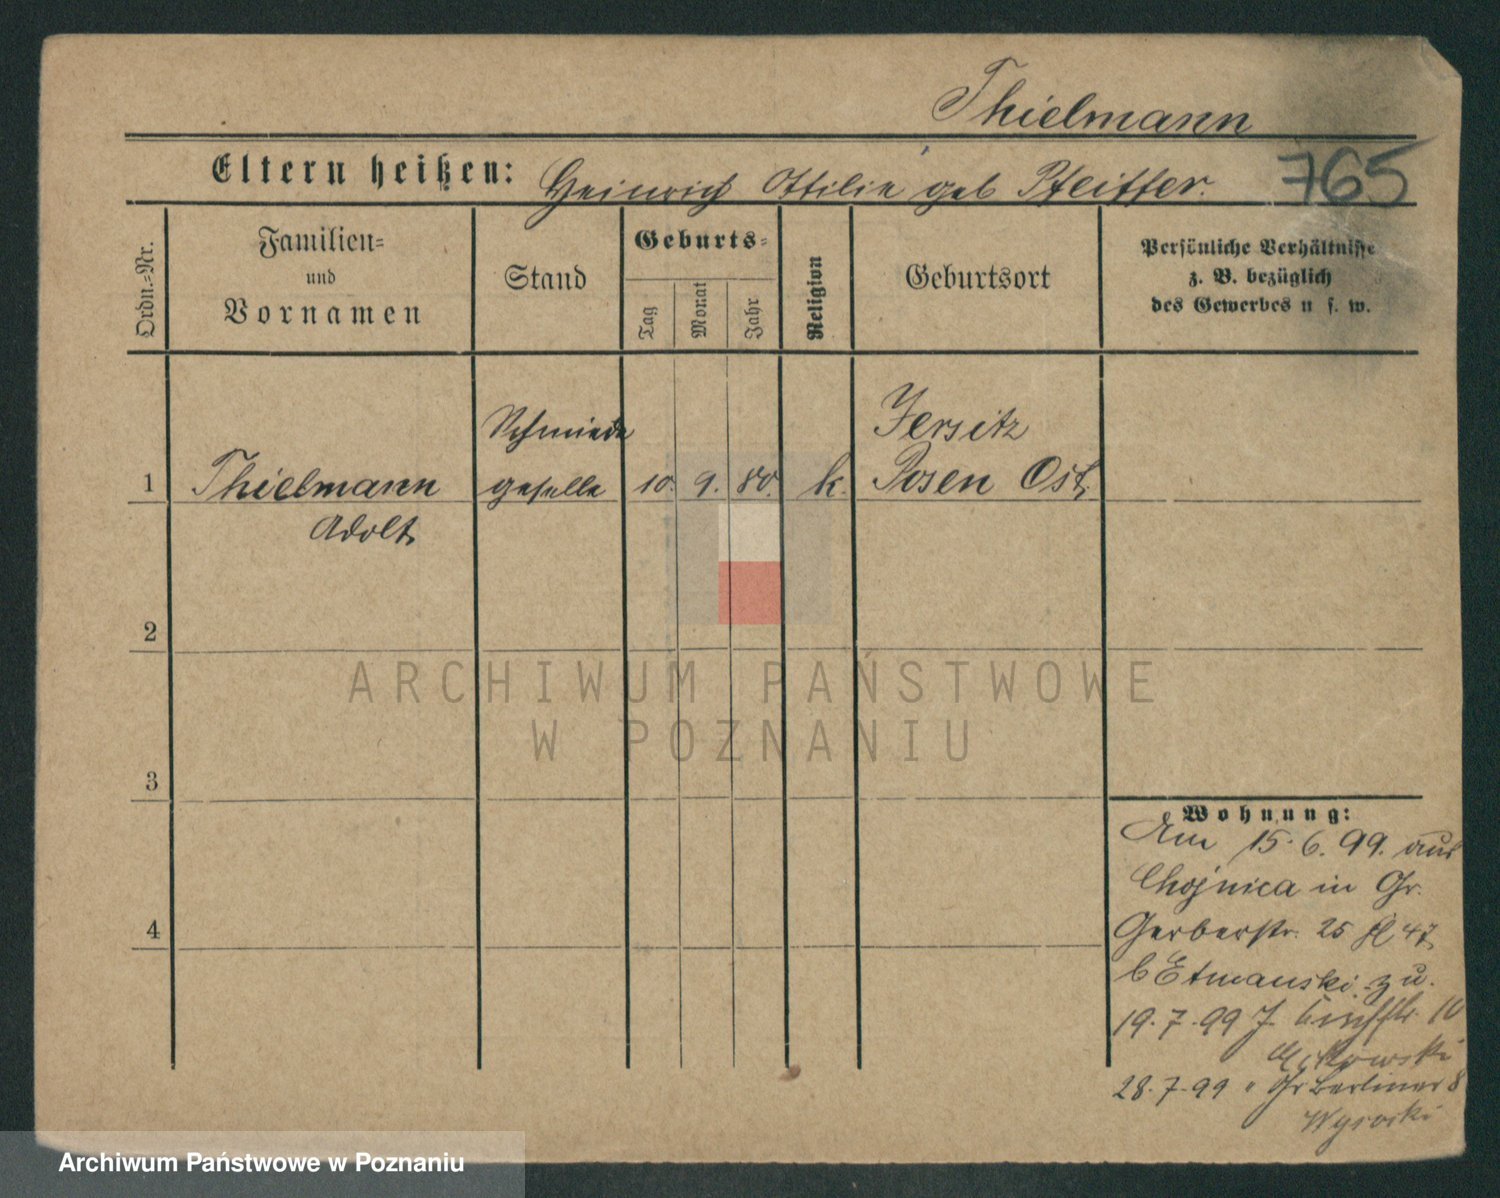 Thielmann
Eltern heißen: Heinrich Ottilie geb Pfeiffer. 765
Ordn.=Nr.
Familien=
und
Vornamen
Stand
Geburts=
Tag
Monat
Jahr
Religion
Geburtsort
Persönliche Verhältnisse
z. B. bezüglich
des Gewerbes u s. w.
Schmiede
Jersitz
1 Thielmann geselle 10. 9. 80. k. Posen Ost,
Adolf
2
ARCHIWUM PAŃSTWOWE
W POZNANIU
3
Wohnung:
Am 15.6.99. aus
Chojnica in Gr.
Gerberstr. 25 47
b Etmanski zu.
19.7.99 J. 10
28.7.99 " Gr Berliner 8
Wysocki
4
Archiwum Państwowe w Poznaniu